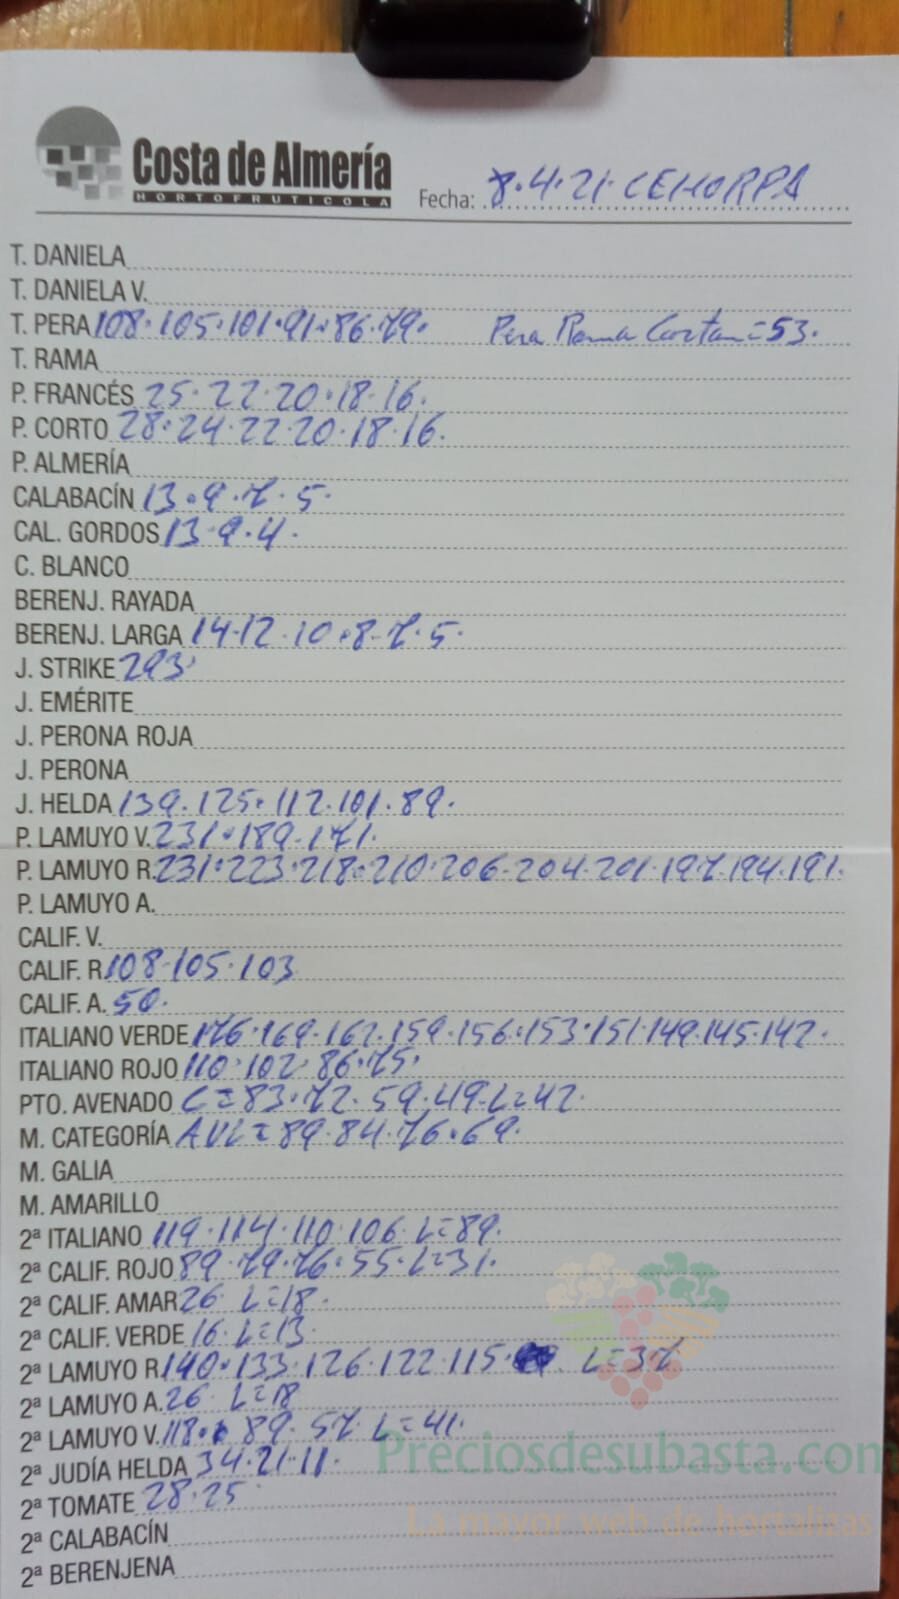 Costa de Almería
HORTOFRUTICOLA
Fecha: 8.4.21. CEHORPA
T. DANIELA
T. DANIELA V.
T. PERA 108.105.101.91.86.79. Pera Rama Cortan=53.
T. RAMA
P. FRANCÉS 25.22.20.18.16.
P. CORTO 28.24.22.20.18.16.
P. ALMERÍA
CALABACÍN 13.9.7.5.
CAL. GORDOS 13.9.4.
C. BLANCO
BERENJ. RAYADA
BERENJ. LARGA 14.12.10.8.7.5.
J. STRIKE 293
J. EMÉRITE
J. PERONA ROJA
J. PERONA
J. HELDA 139.125.112.101.89.
P. LAMUYO V. 231.189.171.
P. LAMUYO R. 231.223.218.210.206.204.201.197.194.191.
P. LAMUYO A.
CALIF. V.
CALIF. R 108.105.103
CALIF. A. 50.
ITALIANO VERDE 176.169.162.159.156.153.151.149.145.142.
ITALIANO ROJO 110.102.86.75.
PTO. AVENADO C=83.72.59.49.L=42.
M. CATEGORÍA AVL=89.84.76.69.
M. GALIA
M. AMARILLO
2ª ITALIANO 119.114.110.106.L=89.
2ª CALIF. ROJO 89.79.76.55.L=31.
2ª CALIF. AMAR 26 L=18.
2ª CALIF. VERDE 16.L=13.
2ª LAMUYO R 140.133.126.122.115. L=37
2ª LAMUYO A. 26 L=18
2ª LAMUYO V. 118. 89.57 L=41.
2ª JUDÍA HELDA 34.21.11.
2ª TOMATE 28.25
2ª CALABACÍN
2ª BERENJENA
Preciosdesubasta.com
La mayor web de hortalizas